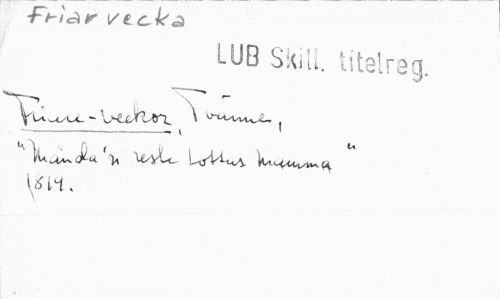 Friarvecka
LUB Skill. titelreg.
Friare-veckor, Tvänne,
"Månda'n reste Lottas mamma"
1819.